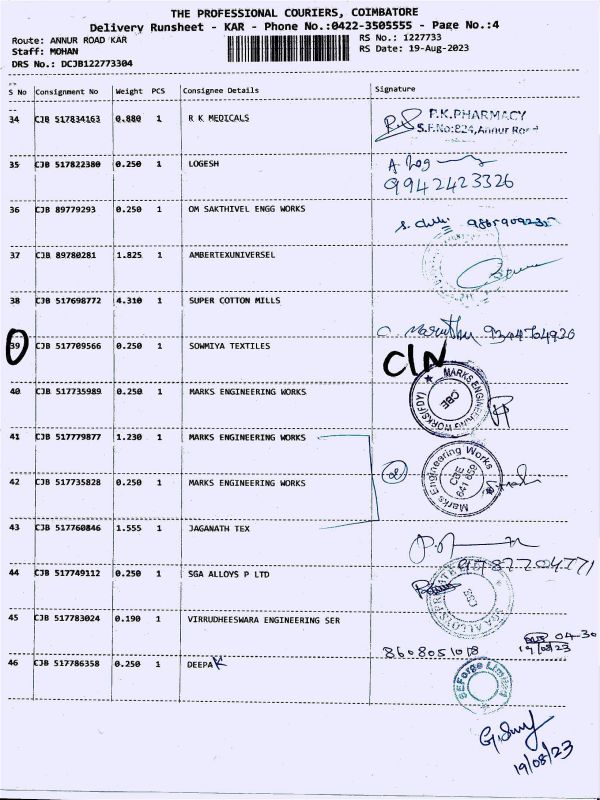 THE PROFESSIONAL COURIERS, COIMBATORE
Delivery Runsheet - KAR - Phone No.:0422-3505555 - Page No.:4
Route: ANNUR ROAD KAR
RS No.: 1227733
Staff: MOHAN
RS Date: 19-Aug-2023
DRS No.: DCJB122773304
S No Consignment No Weight PCS Consignee Details Signature
34 CJB 517834163 0.880 1 R K MEDICALS
P.K.PHARMACY
S.F.No:824,Annur Road
35 CJB 517822380 0.250 1 LOGESH
9942423326
36 CJB 89779293 0.250 1 OM SAKTHIVEL ENGG WORKS
37 CJB 89780281 1.825 1 AMBERTEXUNIVERSEL
38 CJB 517698772 4.310 1 SUPER COTTON MILLS
39 CJB 517709566 0.250 1 SOWMIYA TEXTILES
C/N
40 CJB 517735989 0.250 1 MARKS ENGINEERING WORKS
MARKS ENGINEERING WORKS
CBE
41 CJB 517779877 1.230 1 MARKS ENGINEERING WORKS
42 CJB 517735828 0.250 1 MARKS ENGINEERING WORKS
2
Marks Engineering Works
CBE
43 CJB 517760846 1.555 1 JAGANATH TEX
44 CJB 517749112 0.250 1 SGA ALLOYS P LTD
45 CJB 517783024 0.190 1 VIRRUDHEESWARA ENGINEERING SER
8608051018
04-30
19/08/23
46 CJB 517786358 0.250 1 DEEPAK
19/08/23